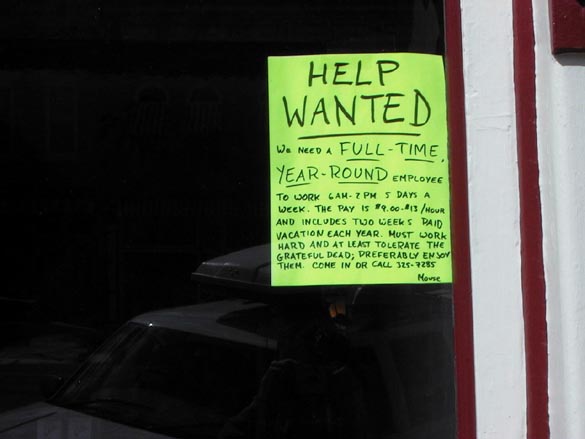 HELP
WANTED
WE NEED A FULL-TIME,
YEAR-ROUND EMPLOYEE
TO WORK 6AM-2PM 5 DAYS A
WEEK. THE PAY IS $9.00-$13/HOUR
AND INCLUDES TWO WEEKS PAID
VACATION EACH YEAR. MUST WORK
HARD AND AT LEAST TOLERATE THE
GRATEFUL DEAD; PREFERABLY ENJOY
THEM. COME IN OR CALL 325-7285
Mouse